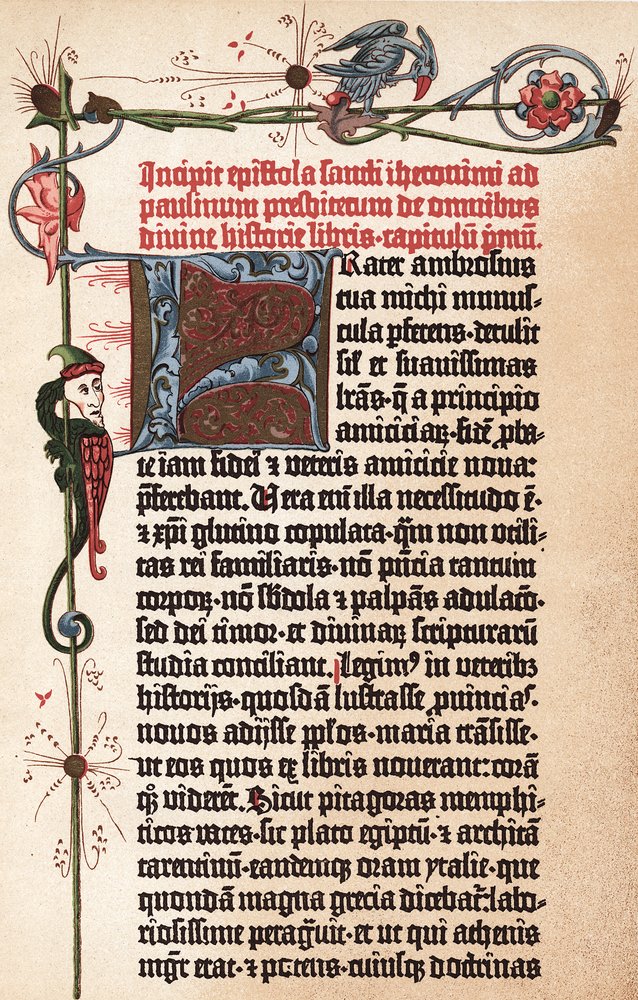 Incipit epistola sancti iheronimi ad
paulinum presbiterum de omnibus
divine historie libris·capitulū p̄mū.
FRater ambrosius
tua michi munus-
cula pferens·detulit
sil' et suavissimas
lrās·q̄ a principio
amiciciaꝝ·fidē pba-
te iam fidei ⁊ veteris amicicie nova:
pferebant. Vera eni illa necessitudo ē·
⁊ xp̄i glutino copulata·q̄m non utili-
tas rei familiaris·nō pn̄cia tantum
corpoꝝ·nō sbdola ⁊ palpās adulacō·
sed dei timor·et divinaꝝ scripturarū
studia conciliant. Legimꝰ in veteribꝫ
historijs·quosdā lustrasse p̱uincias·
novos adijsse pplos·maria trāsisse·
ut eos quos ex libris noverant: corā
qꝫ viderēt. Sicut pitagoras memphi-
ticos vates·sic plato egiptū·⁊ architā
tarentinū·eandemqꝫ oram ytalie·que
quondā magna grecia dicebat̄: labo-
riosissime peragvit·et ut qui athenis
mgr̄ erat·⁊ potens·cuiusqꝫ doctrinas